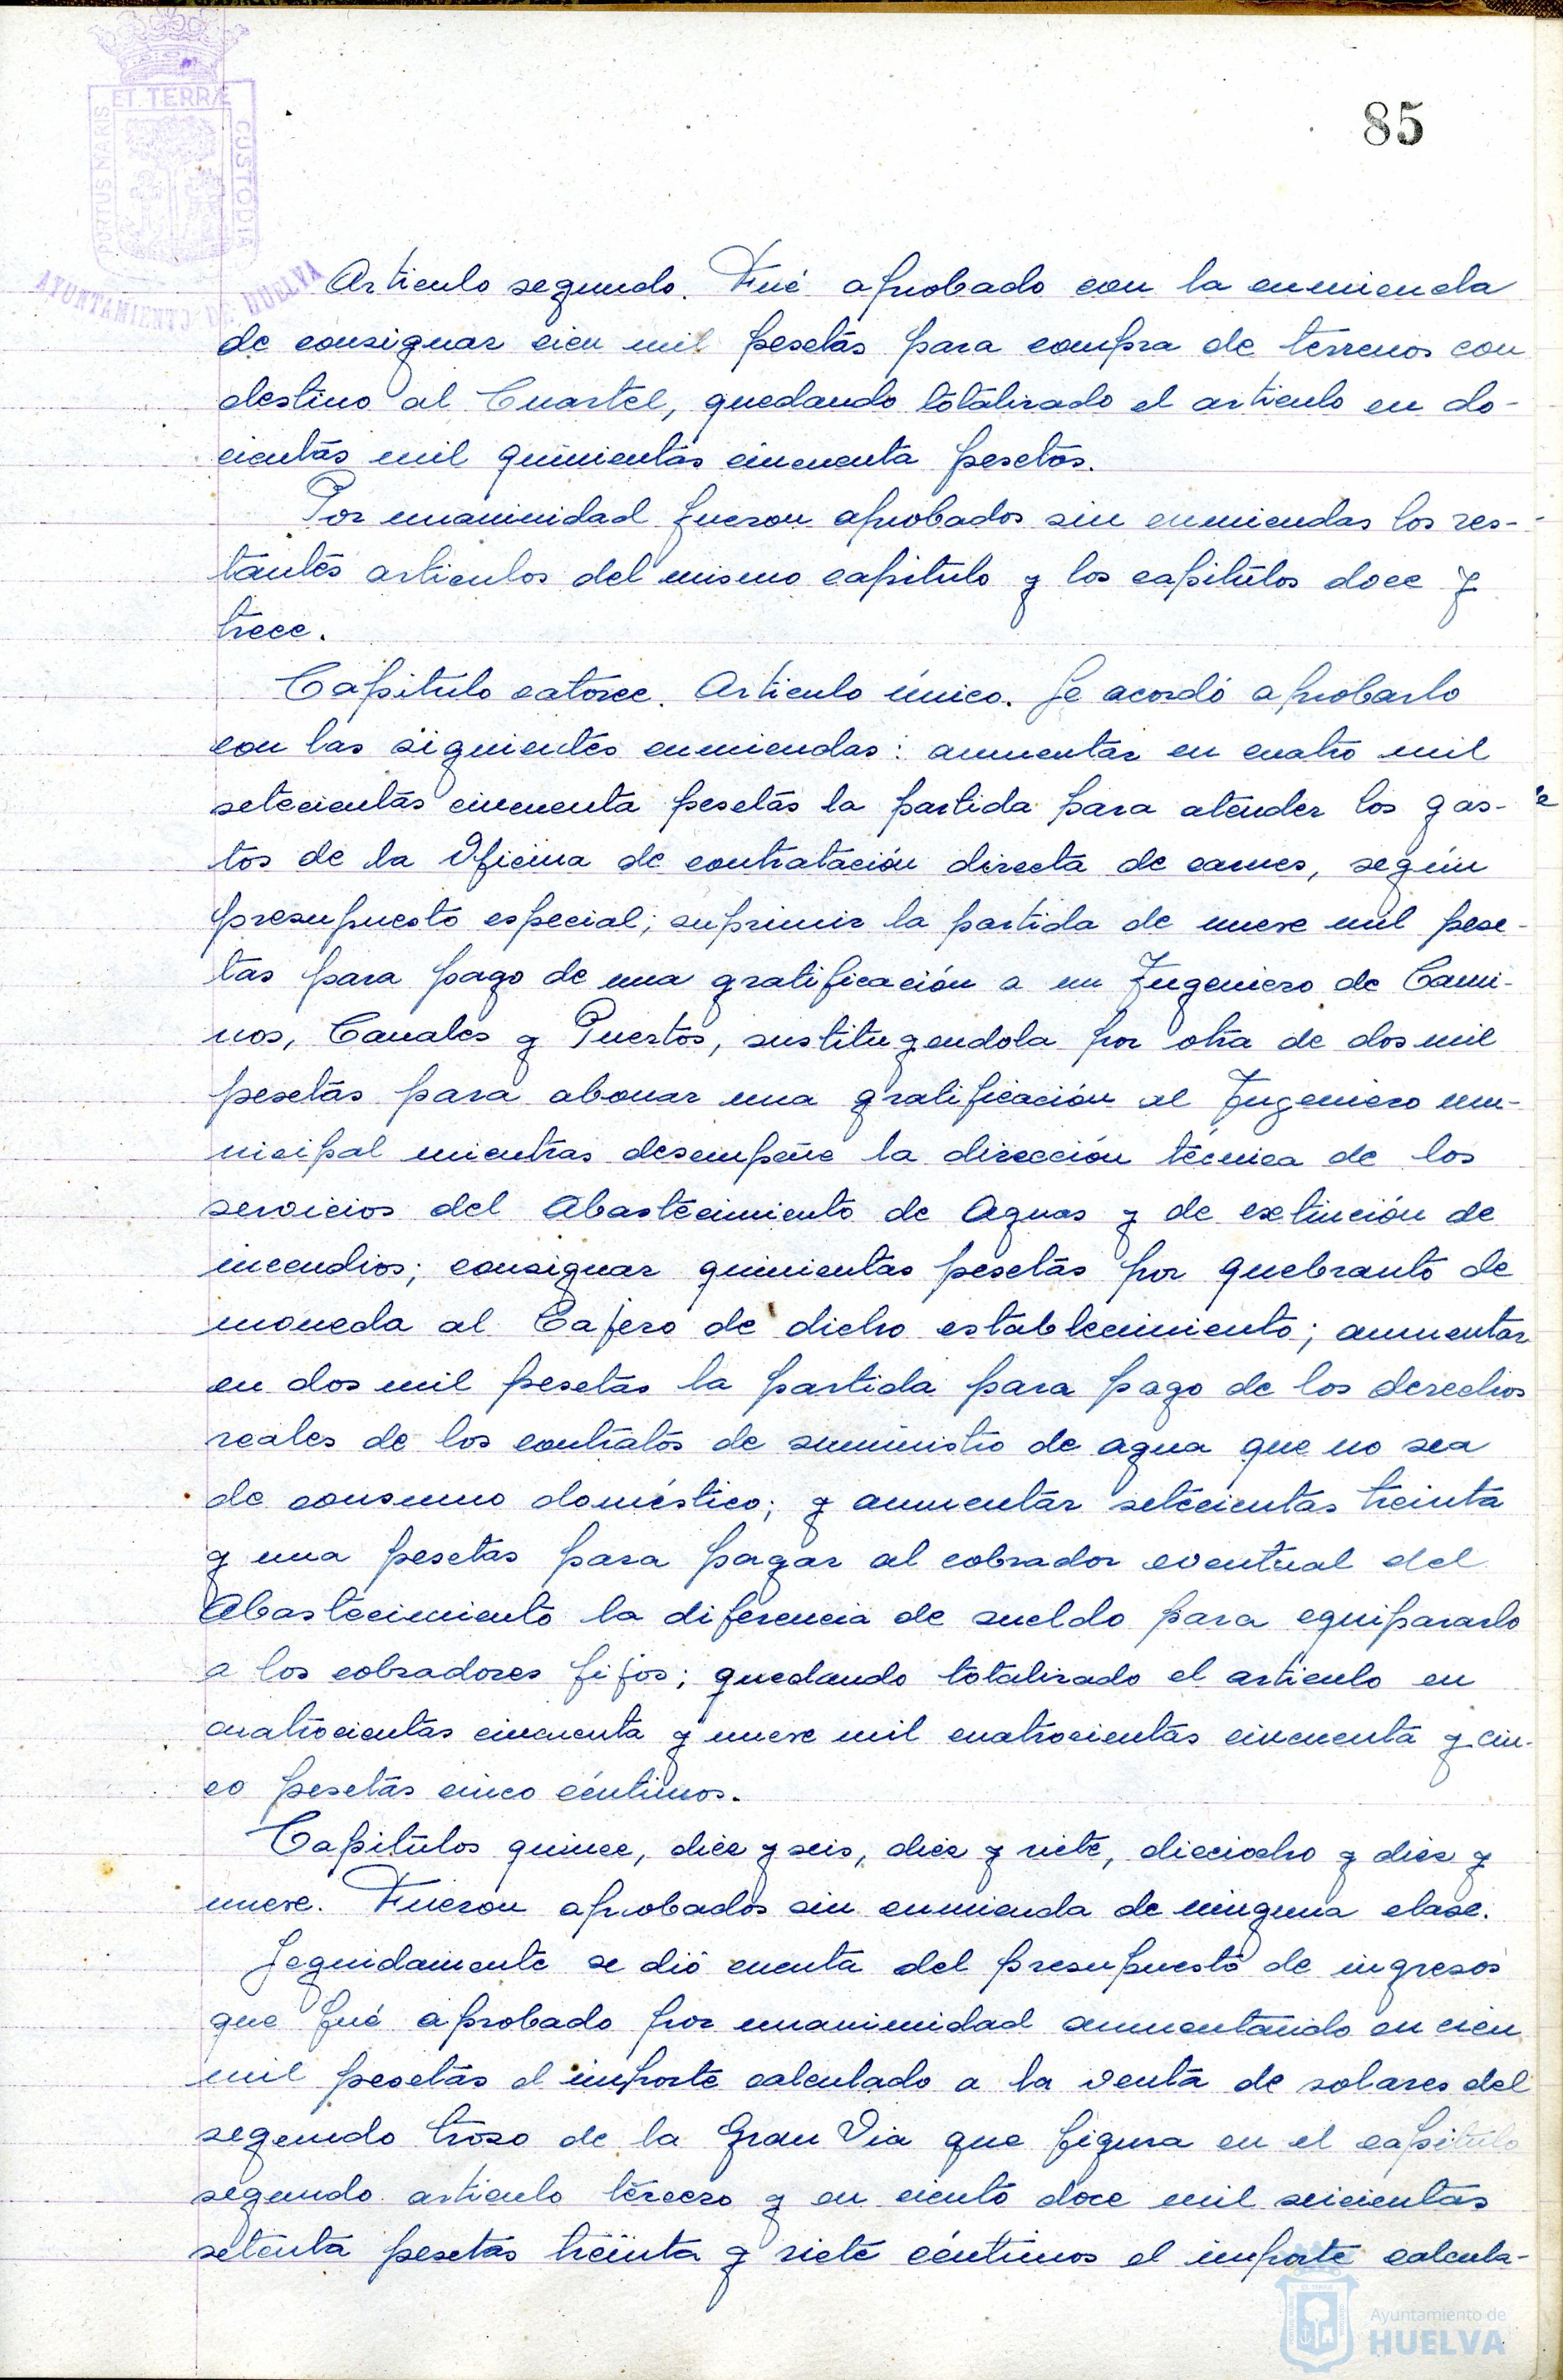 85
PORTUS MARIS ET TERRÆ CUSTODIA
AYUNTAMIENTO DE HUELVA
Articulo segundo. Fué aprobado con la enmienda
de consignar cien mil pesetas para compra de terrenos con
destino al Cuartel, quedando totalizado el articulo en do-
cientas mil quinientas cincuenta pesetas.
Por unanimidad fueron aprobados sin enmiendas los res-
tantes articulos del mismo capitulo y los capitulos doce y
trece.
Capitulo catorce. Articulo único. Se acordó aprobarlo
con las siguientes enmiendas: aumentar en cuatro mil
setecientas cincuenta pesetas la partida para atender los gas-
tos de la Oficina de contratación directa de carnes, según
presupuesto especial; suprimir la partida de nueve mil pese-
tas para pago de una gratificación a un Ingeniero de Cami-
nos, Canales y Puertos, sustituyendola por otra de dos mil
pesetas para abonar una gratificación al Ingeniero mu-
nicipal mientras desempeñe la dirección técnica de los
servicios del Abastecimiento de Aguas y de extinción de
incendios; consignar quinientas pesetas por quebranto de
moneda al Cajero de dicho establecimiento; aumentar
en dos mil pesetas la partida para pago de los derechos
reales de los contratos de suministro de agua que no sea
de consumo doméstico; y aumentar setecientas treinta
y una pesetas para pagar al cobrador eventual del
Abastecimiento la diferencia de sueldo para equipararlo
a los cobradores fijos; quedando totalizado el articulo en
cuatrocientas cincuenta y nueve mil cuatrocientas cincuenta y cin-
co pesetas cinco céntimos.
Capitulos quince, diez y seis, diez y siete, dieciocho y diez y
nueve. Fueron aprobados sin enmienda de ninguna clase.
Seguidamente se dió cuenta del presupuesto de ingresos
que fué aprobado por unanimidad aumentando en cien
mil pesetas el importe calculado a la venta de solares del
segundo trozo de la Gran Via que figura en el capitulo
segundo articulo tercero y en ciento doce mil seicientas
setenta pesetas treinta y siete céntimos el importe calcula-
Ayuntamiento de
HUELVA